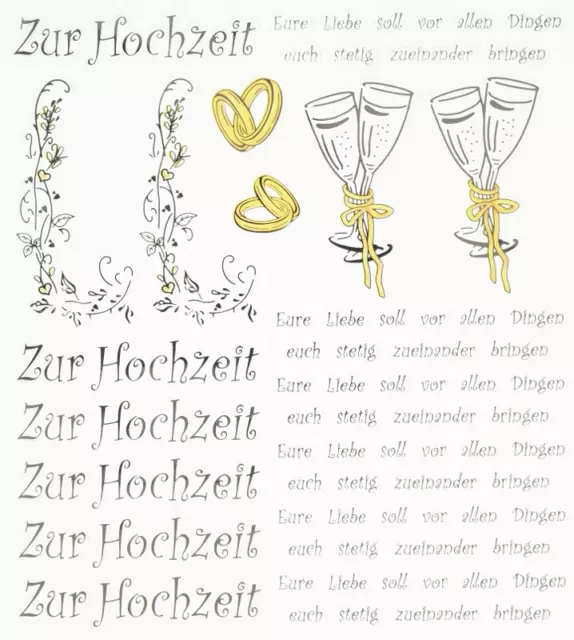 Zur Hochzeit
Eure Liebe soll vor allen Dingen
euch stetig zueinander bringen
Eure Liebe soll vor allen Dingen
euch stetig zueinander bringen
Zur Hochzeit
Eure Liebe soll vor allen Dingen
euch stetig zueinander bringen
Zur Hochzeit
Eure Liebe soll vor allen Dingen
euch stetig zueinander bringen
Zur Hochzeit
Eure Liebe soll vor allen Dingen
euch stetig zueinander bringen
Zur Hochzeit
Eure Liebe soll vor allen Dingen
euch stetig zueinander bringen
Zur Hochzeit